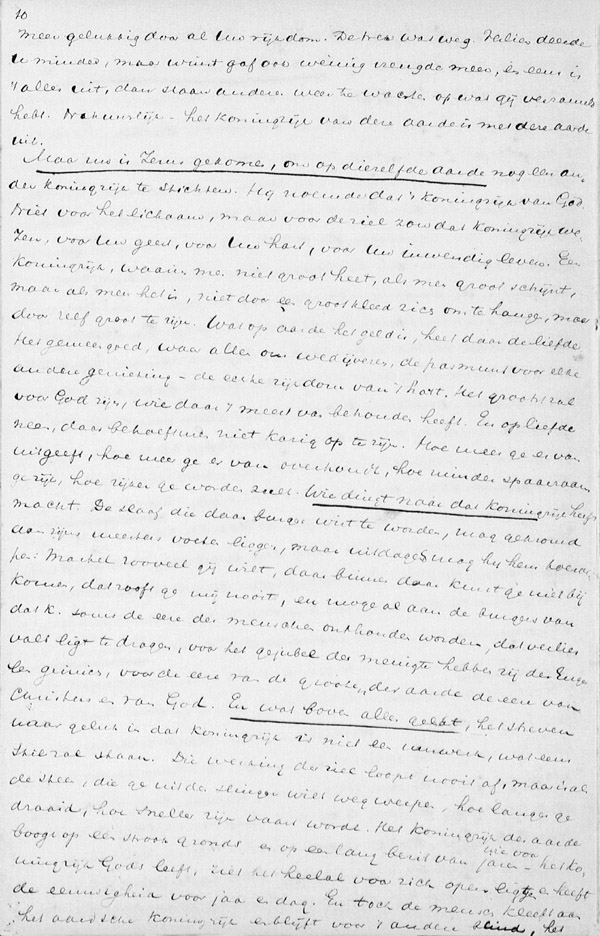 10
meer gelukkig door al Uw rijkdom. De trek was weg. Verlies deerde
U minder, maar winst gaf ook weinig vreugde meer, en eens is
't alles uit, dan staan anderen weer te wachten op wat gij verzameld
hebt. Natuurlijk – het koningrijk van deze aarde is met deze aarde
uit.
Maar nu is Jezus gekomen, om op diezelfde aarde nog een an-
der koningrijk te stichten. Hij noemde dat 't koningrijk van God.
Niet voor het lichaam, maar voor de ziel zou dat koningrijk we-
zen, voor Uw geest, voor Uw hart, voor Uw inwendig leven. Een
koningrijk, waarin men niet groot heet, als men groot schijnt,
maar als men het is, niet door een groot kleed zich om te hangen, maar
door zelf groot te zijn. Wat op aarde het geld is, heet daar de liefde
Het gemeengoed, waar allen om wedijveren, de pasmunt voor elke
andere genieting – de echte rijkdom van 't hart. Het grootst zal
voor God zijn, wie daar 't meest van behouden heeft. En op liefde
neen, daar behoeft men niet karig op te zijn. Hoe meer ge er van
uitgeeft, hoe meer ge er van overhoudt, hoe minder spaarzaam
ge zijt, hoe rijker ge worden zult. Wie dingt naar dat koningrijk heeft
macht. De slaaf die daar burger wist te worden, mag geboeid
aan zijns meesters voeten liggen, maar uitdagend mag hij hem toeroe-
pen: Martel zooveel gij wilt, daar binnen daar kunt ge niet bij
komen, dat rooft ge mij nooit, en moge al aan de burgers van
dat k. soms de eere der menschen onthouden worden, dat verlies
valt ligt te dragen, voor het gejubel der menigte hebben zij der Enge-
len gejuich, voor de eere van de grooten der aarde de eer van
Christus en van God. En wat boven alles geldt, het streven
naar geluk in dat koningrijk is niet een uurwerk, wat eens
stil zal staan. Die werking der ziel loopt nooit af, maar is als
de steen, die ge uit de slinger wilt weg werpen, hoe langer ge
draaid, hoe sneller zijn vaart wordt. Het koningrijk der aarde
booge op een strook gronds en op een lang bezit van jaren – wie voor het ko-
ningrijk Gods leeft, ziet het heelal voor zich open liggen en heeft
de eeuwigheid voor jaar en dag. En toch de mensch kleeft aan
het aardsche koningrijk en blijft voor 't andere blind, het